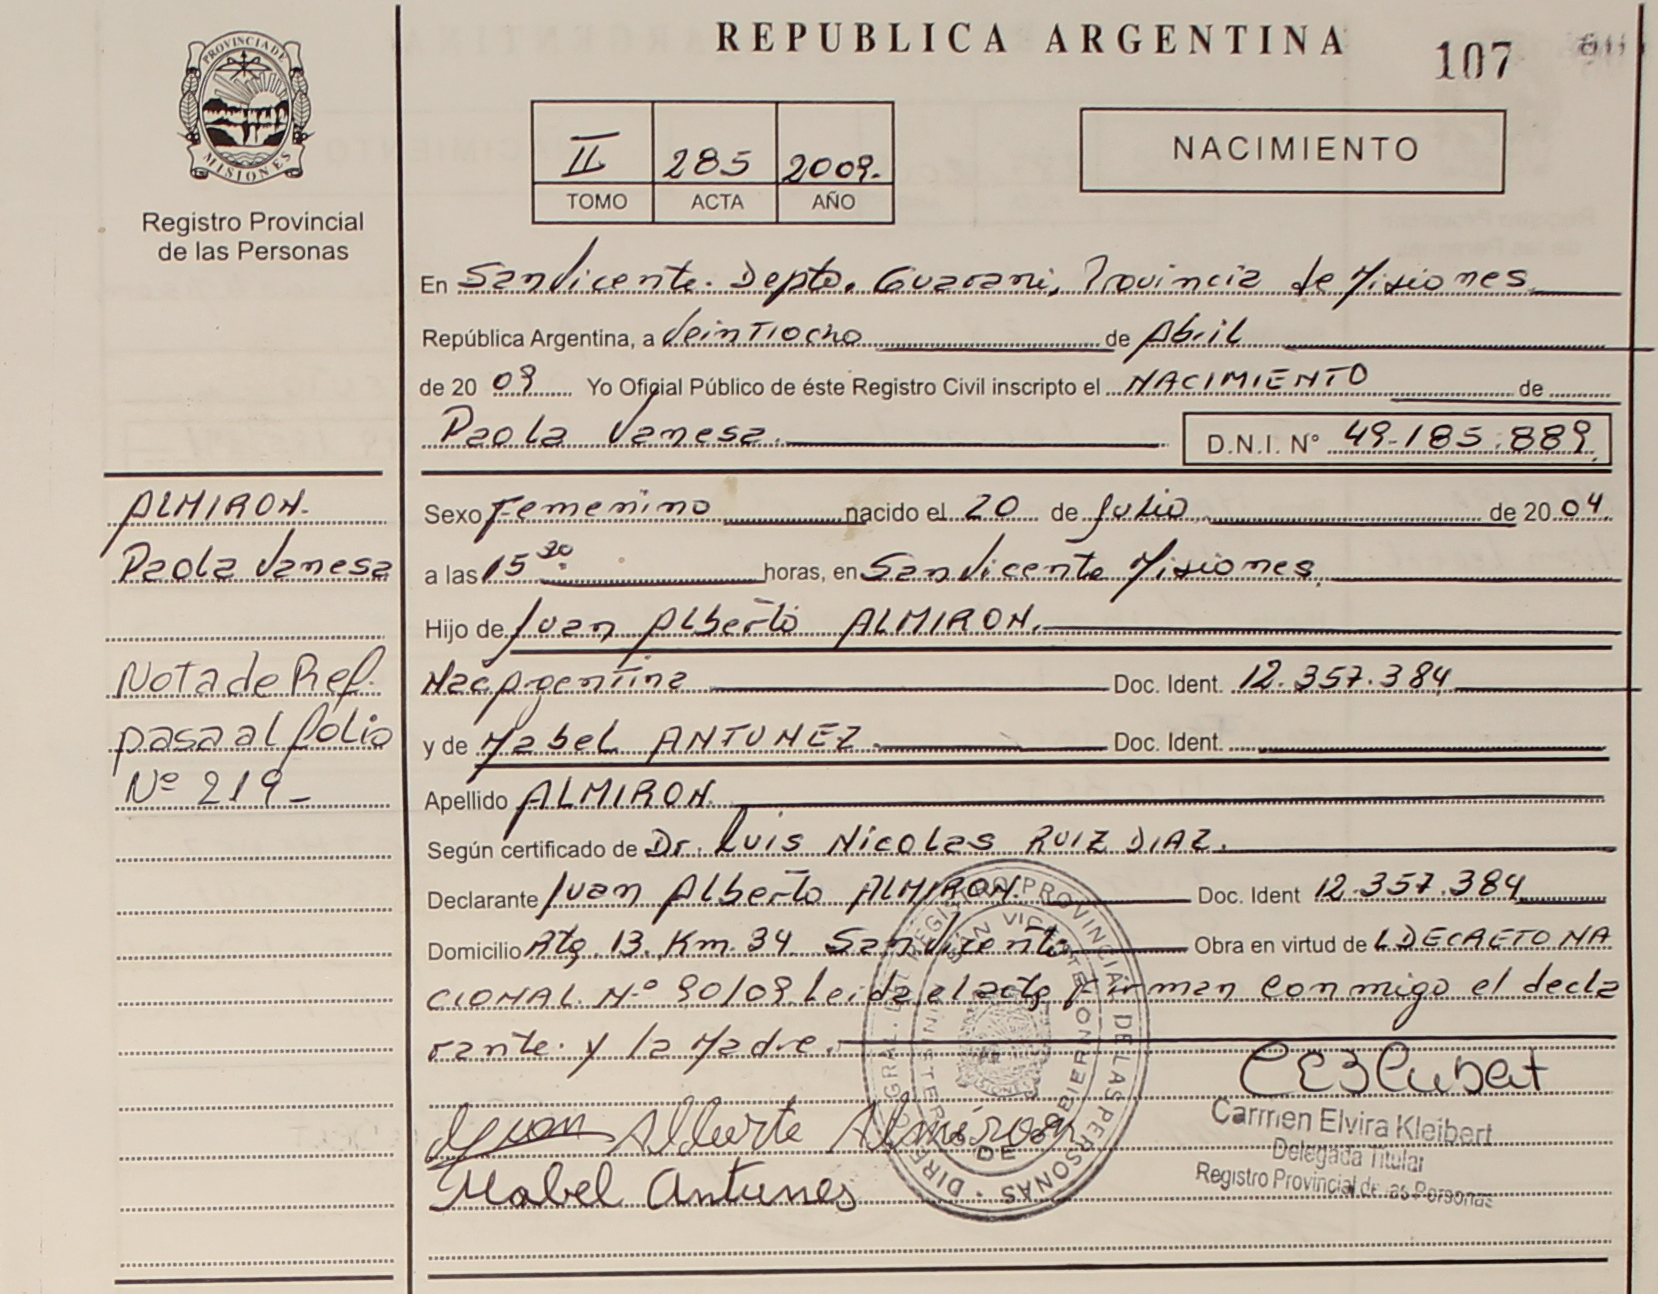 REPUBLICA ARGENTINA
107
PROVINCIA DE MISIONES
Registro Provincial
de las Personas
II 285 2009.
TOMO ACTA AÑO
NACIMIENTO
En San Vicente. Depto. Guarani, Provincia de Misiones
República Argentina, a Veintiocho de Abril
de 20 09 Yo Oficial Público de éste Registro Civil inscripto el NACIMIENTO de
Paola Vanesa. D.N.I. N° 49.185.889.
ALMIRON.
Paola Vanesa
Nota de Ref.
pasa al folio
Nº 219_
Sexo Femenino nacido el 20 de Julio de 20 04.
a las 15 30 horas, en San Vicente Misiones.
Hijo de Juan Alberto ALMIRON.
Nac Argentina Doc. Ident. 12.357.384
y de Mabel ANTUNEZ Doc. Ident.
Apellido ALMIRON.
Según certificado de Dr. Luis Nicolas RUIZ DIAZ.
Declarante Juan Alberto ALMIRON. Doc. Ident 12.357.384
Domicilio Km. 34 San Vicente Obra en virtud de L DECRETO NA
CIONAL. N.º 90/09. Leida el acta firman conmigo el decla
rante. y la Madre.
Juan Alberto Almiron
Mabel Antunes
Carmen Elvira Kleibert
Delegada Titular
Registro Provincial de las Personas
DIREC GRAL. DEL REGISTRO PROVINCIAL DE LAS PERSONAS
SAN VICENTE
MINISTERIO DE GOBIERNO